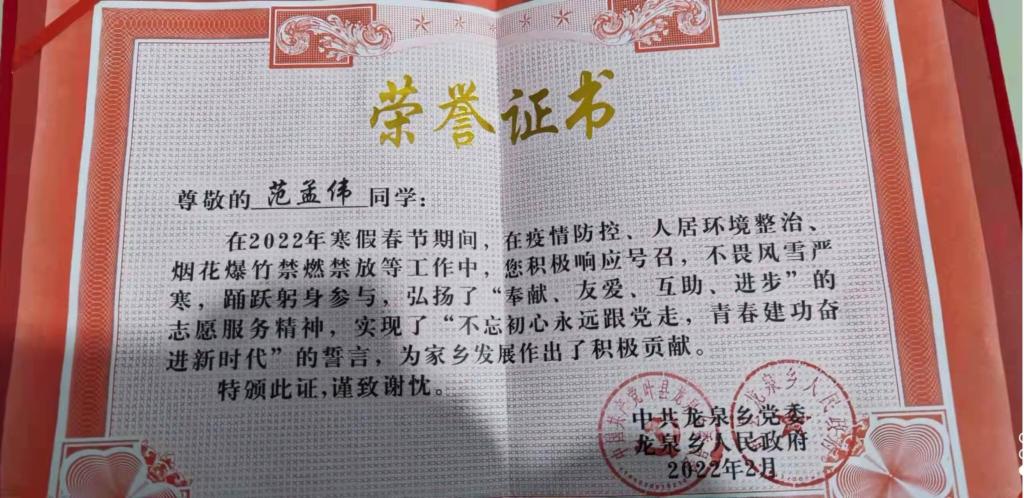 荣誉证书
尊敬的 范孟伟 同学：
在2022年寒假春节期间，在疫情防控、人居环境整治、
烟花爆竹禁燃禁放等工作中，您积极响应号召，不畏风雪严
寒，踊跃躬身参与，弘扬了“奉献、友爱、互助、进步”的
志愿服务精神，实现了“不忘初心永远跟党走，青春建功奋
进新时代”的誓言，为家乡发展作出了积极贡献。
特颁此证，谨致谢忱。
中共龙泉乡党委
龙泉乡人民政府
2022年2月